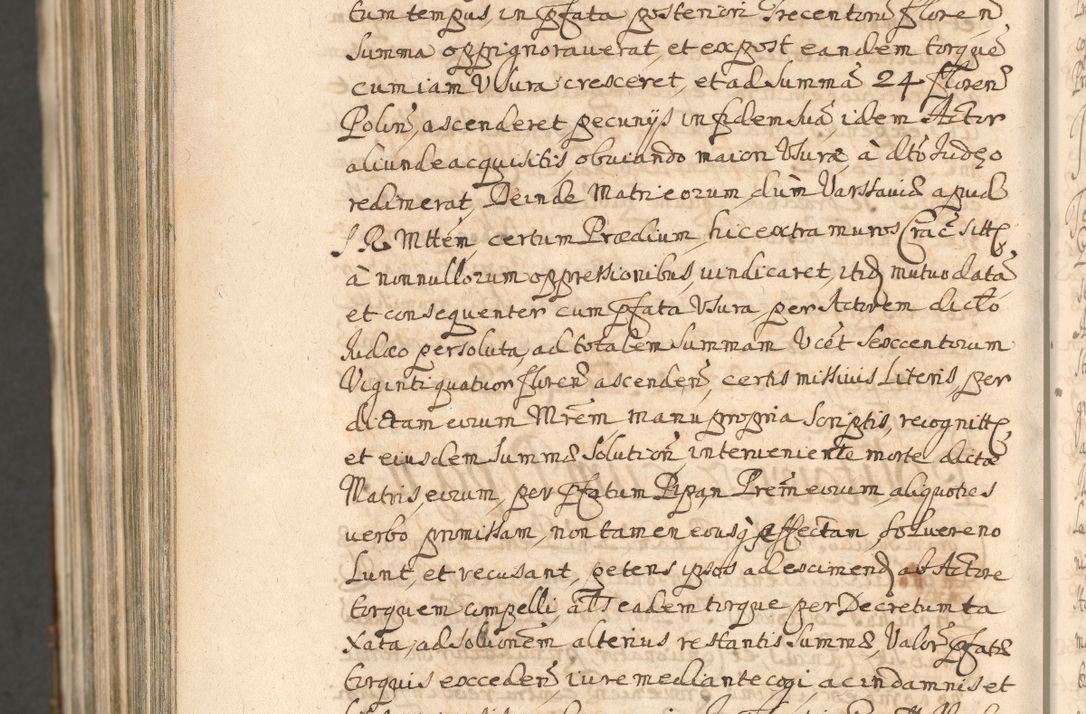 tum tempus in pfata posteriori Trecentoru floren
summa oppignoraverat, et ex post eandem torque
cum iam Usura cresceret, et ad Summã 24 floren
Polin, ascenderet pecunijs in fidem suã, idem Actor
aliunde acquisitis, obviando maiori Usuræ, à dto Judęo
redimerat, Deinde Matri eorum, dum Varsaviæ apud
S. R. Mttem certum Prædium, hic extra muros Crac sitt
à nonnullorum oppressionibus, vindicaret, itid mutuo datã
et consequenter cum pfata Usura, per Actorem dicto
Judæo persoluta, ad totalem summam Ucet Sexcentorum
Viginti quatuor floren ascenden, certis missivis Literis, per
dictam eorum Mrem manu propria scriptis, recognitt
et eiusdem summæ Solution, interveniente morte dictæ
Matris, eorum, per pfatum Pipan Prem eorum, aliquoties
verbo promissam, non tamen eousq effectam solvere no
lunt, et recusant, petens ipsos ad eximend ab Actore
torquem compelli, als eadem torque per Decretum ta
xata, ad solionem alterius restantis summæ, Valor pfatæ
torquis exceden, iure mediante cogi, ac in damnis et